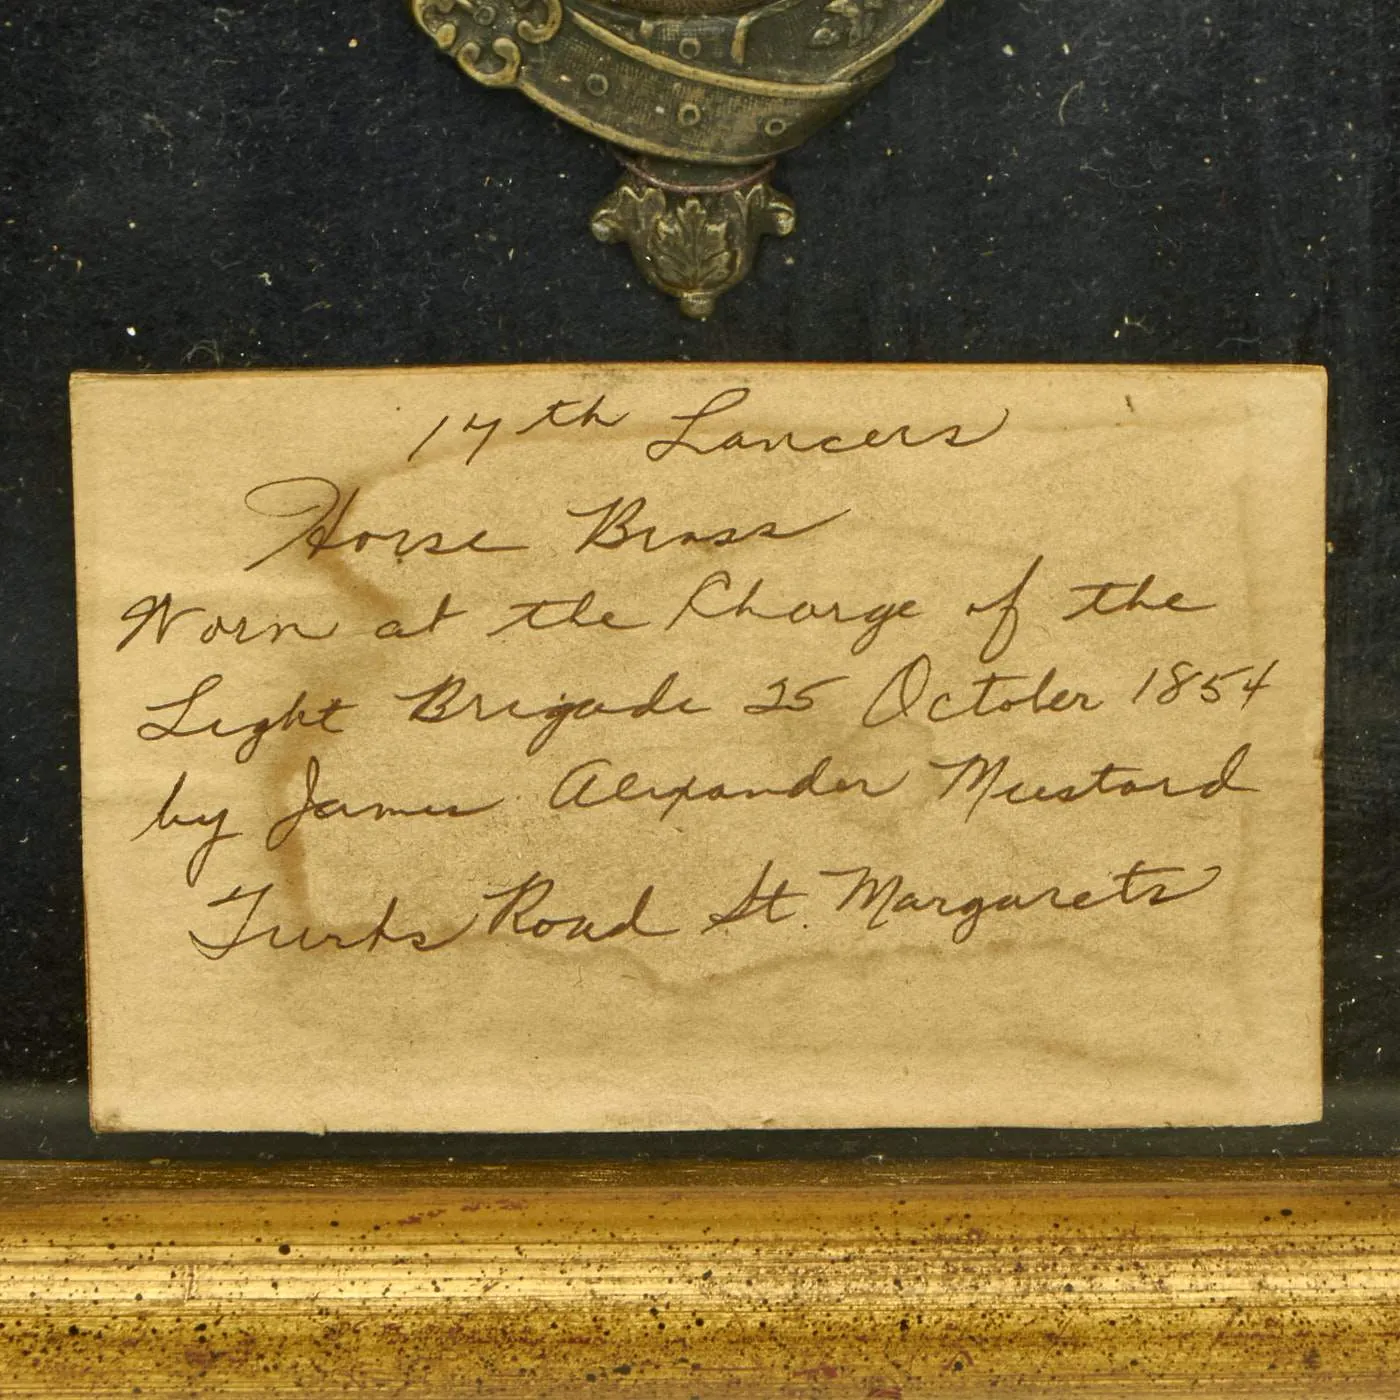 17th Lancers
Horse Brass
Worn at the Charge of the
Light Brigade 25 October 1854
by James Alexander Mustard
Turks Road St. Margarets